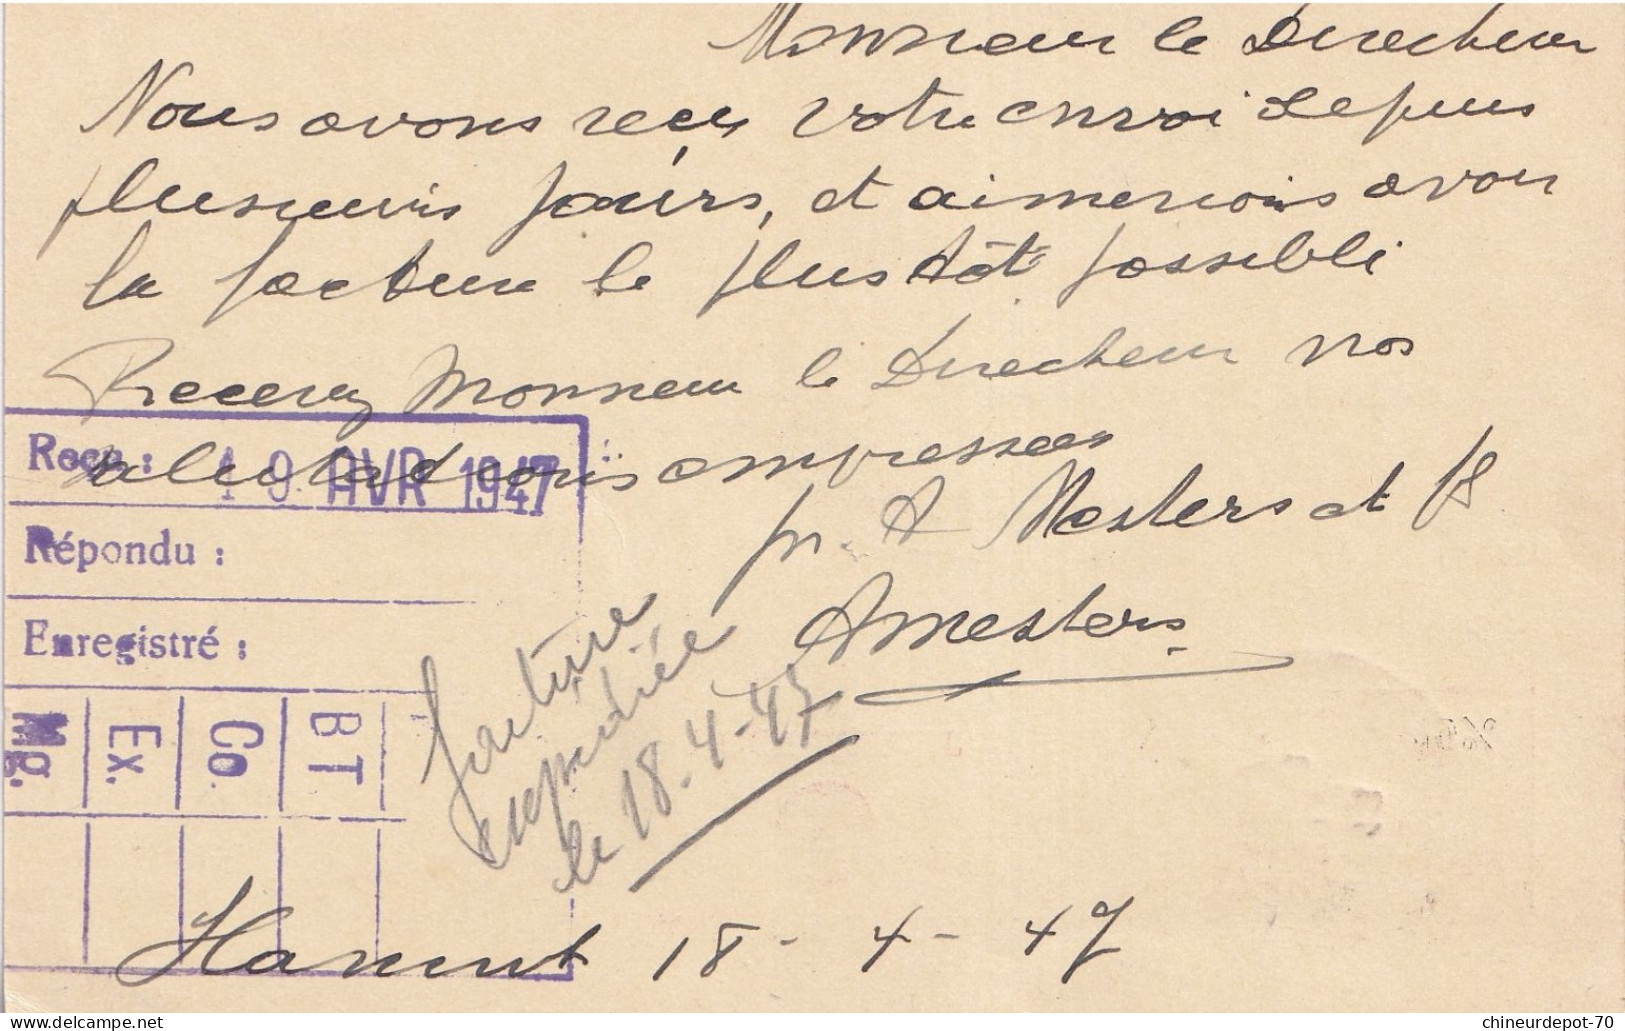 Monsieur le Directeur
Nous avons reçu votre envoi depuis
plusieurs jours, et aimerions avoir
la facture le plus tôt possible
Recevez Monsieur le Directeur nos
salutations empressées
Reçu : 19 AVR 1947
pr. A Mesters et fs
Répondu :
AMesters
Enregistré :
facture
expédiée
le 18-4-47
BT
Co.
Ex.
Mg.
Hannut 18-4-47
delcampe.net
chineurdepot-70